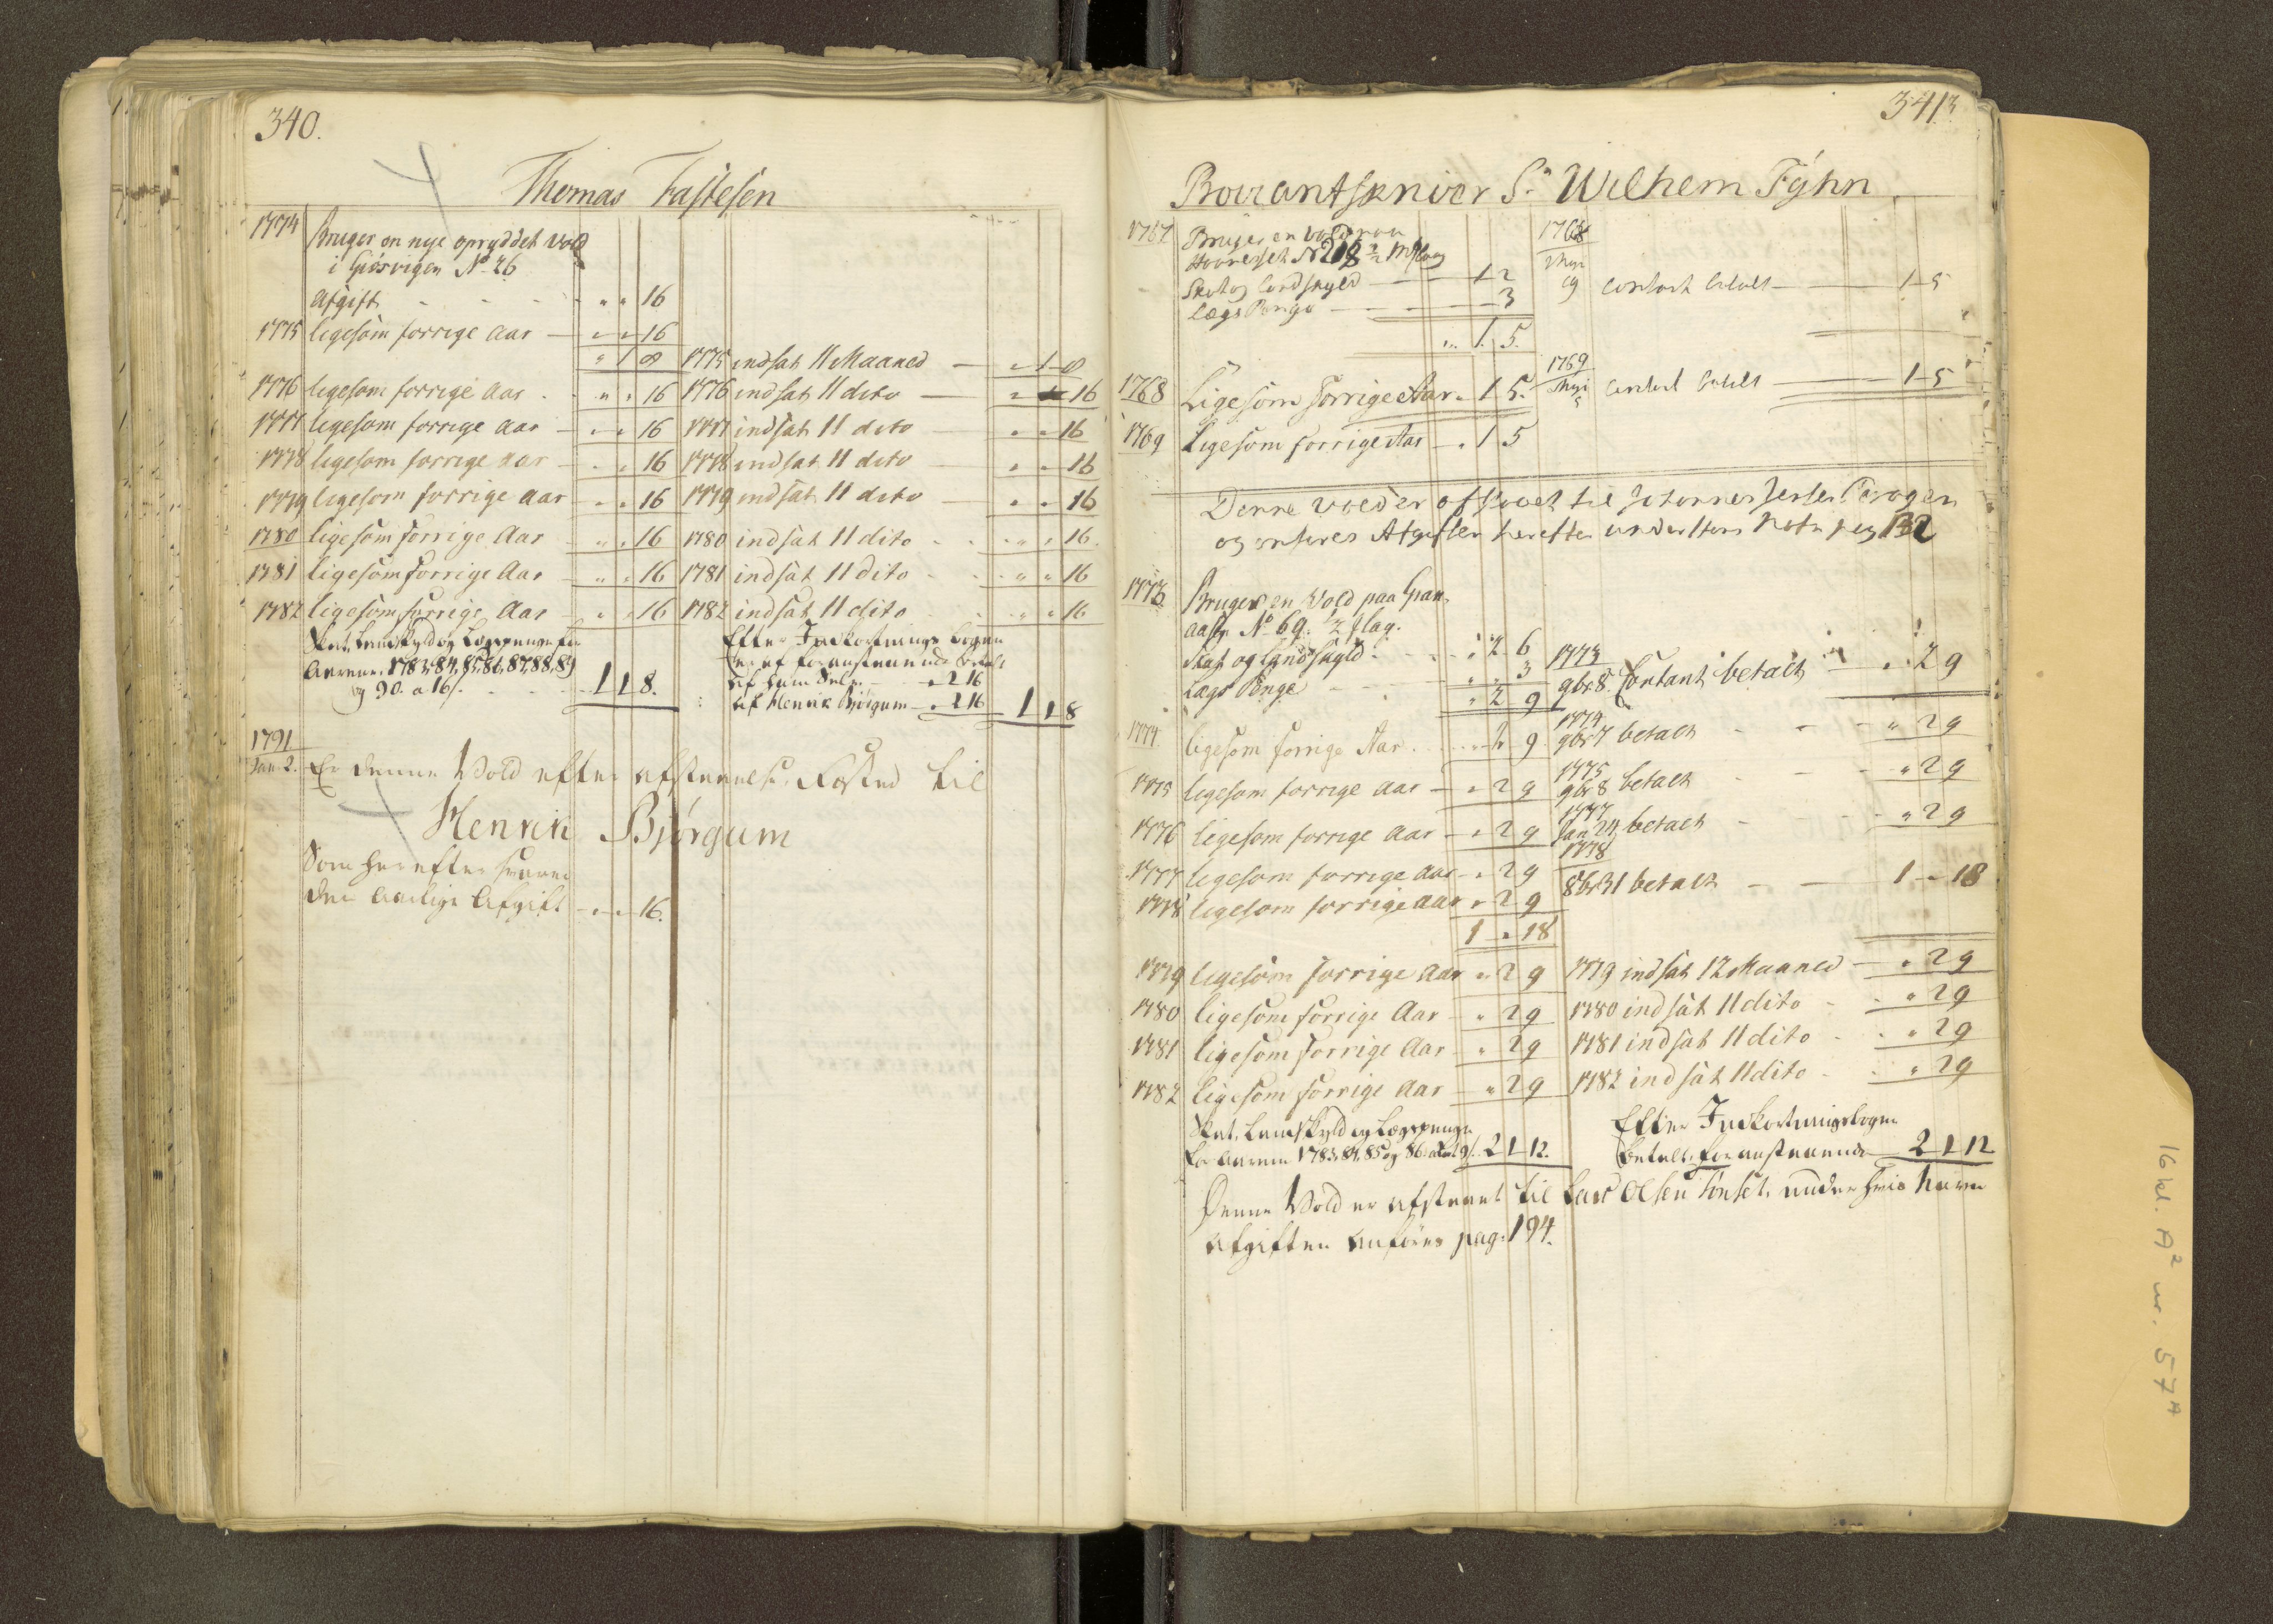 340.
Thomas Fastesen
1774 Bruger en nye opryddet Vold
i Giösvigen No 26
Afgift - - - " " 16
1775 ligesom forrige Aar - " " 16
" 1 8 1775 indsat 11 Maaned - " 1 8
1776 ligesom forrige Aar - " " 16 1776 indsat 11 dito - " " 16
1777 ligesom forrige Aar - " " 16 1777 indsat 11 dito - " " 16
1778 ligesom forrige Aar - " " 16 1778 indsat 11 dito - " " 16
1779 ligesom forrige Aar - " " 16 1779 indsat 11 dito - " " 16
1780 ligesom forrige Aar - " " 16 1780 indsat 11 dito - " " 16.
1781 ligesom forrige Aar - " " 16 1781 indsat 11 dito - " " 16
1782 ligesom forrige Aar - " " 16 1782 indsat 11 dito - " " 16
Skat, Landskyld og Lægspenge for
Aarene 1783, 84, 85, 86, 87, 88, 89
og 90. a 16 s. - - - 1 1 8.
Efter Indkortnings bogen
foranstaaende betalt
af ham Selv - " 2 16
af Henrik Bjørgum - " 2 16 1 1 8
1791
Jan: 2. Er denne Vold efter afstaaelse Fæsted til
Henrik Bjørgum
Som herefter svarer
den aarlige Afgift - " " 16.
341
Sr Wilhem Fÿhn
1767 Bruger en vold paa
Skat og landskyld - 1 2
Lægs Penge - 3
" 1. 5.
1768
Contant betalt - 1 5
1768 Ligesom forrige Aar " 1 5.
1769
Contant betalt - 1 5
1769 Ligesom forrige Aar - " 1 5
Denne vold er til
og anføres Afgiften herefter under Hans Nafn pag 132
1773 Bruger en Vold paa Gran
aasen No 69. 1/2 slag.
Skat og landskyld - " 2 6
Lægs Penge - " " 3
" 2 9
1773
9br 8. Contant betalt - " 2 9
1774 ligesom forrige Aar - " 2 9
1774
9br 7 betalt - " 2 9
1775 ligesom forrige Aar - " 2 9
1775
9br 8 betalt - " 2 9
1776 ligesom forrige Aar - " 2 9
1777
Jan 24 betalt - " 2 9
1777 ligesom forrige Aar - " 2 9
1778 ligesom forrige Aar " 2 9
1778
8br 31 betalt - 1 " 18
1 " 18
1779 ligesom forrige Aar " 2 9 1779 indsat 12 Maaned - " 2 9
1780 ligesom forrige Aar - " 2 9 1780 indsat 11 dito - " 2 9
1781 ligesom forrige Aar - " 2 9 1781 indsat 11 dito - " 2 9
1782 ligesom forrige Aar - " 2 9 1782 indsat 11 dito - " 2 9
Skat, Landskyld og Lægspenge
for Aarene 1783, 84, 85 og 86. 2 1 12.
Efter Indkortningsbogen
betalt foranstaaende 2 1 12
Denne Vold er afstaaet til Lars Olsen Tønset, under hvis Navn
afgiften anføres pag: 194.
16 kl. A2 nr. 57A